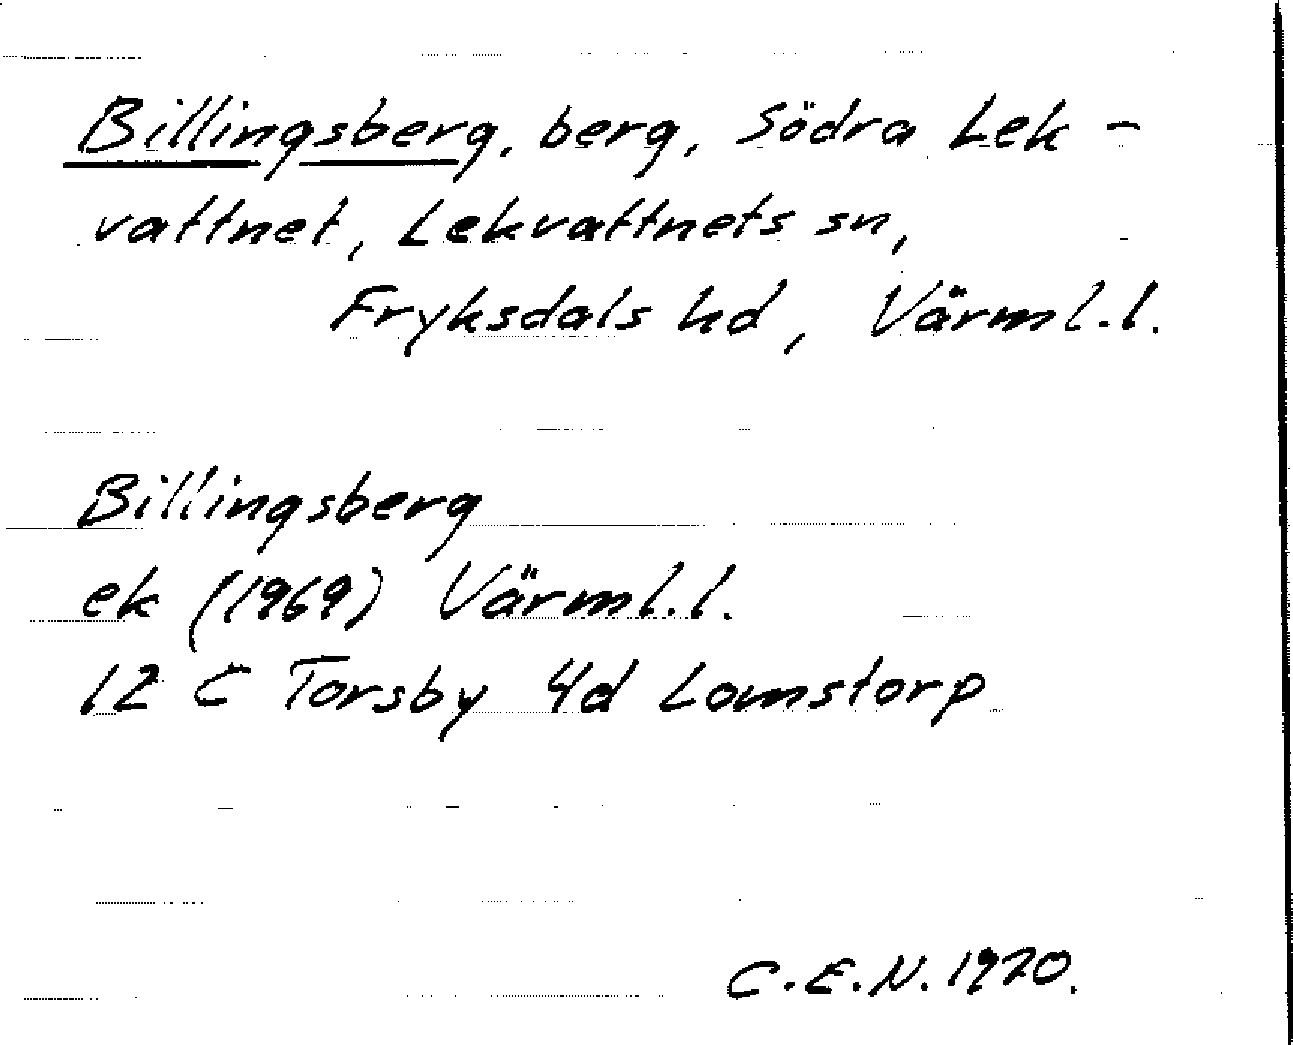 Billingsberg, berg, Södra Lek-
vattnet, Lekvattnets sn,
Fryksdals hd, Värml.l.
Billingsberg
ek (1969) Värml.l.
12 C Torsby 4d Lomstorp
C.E.N. 1970.